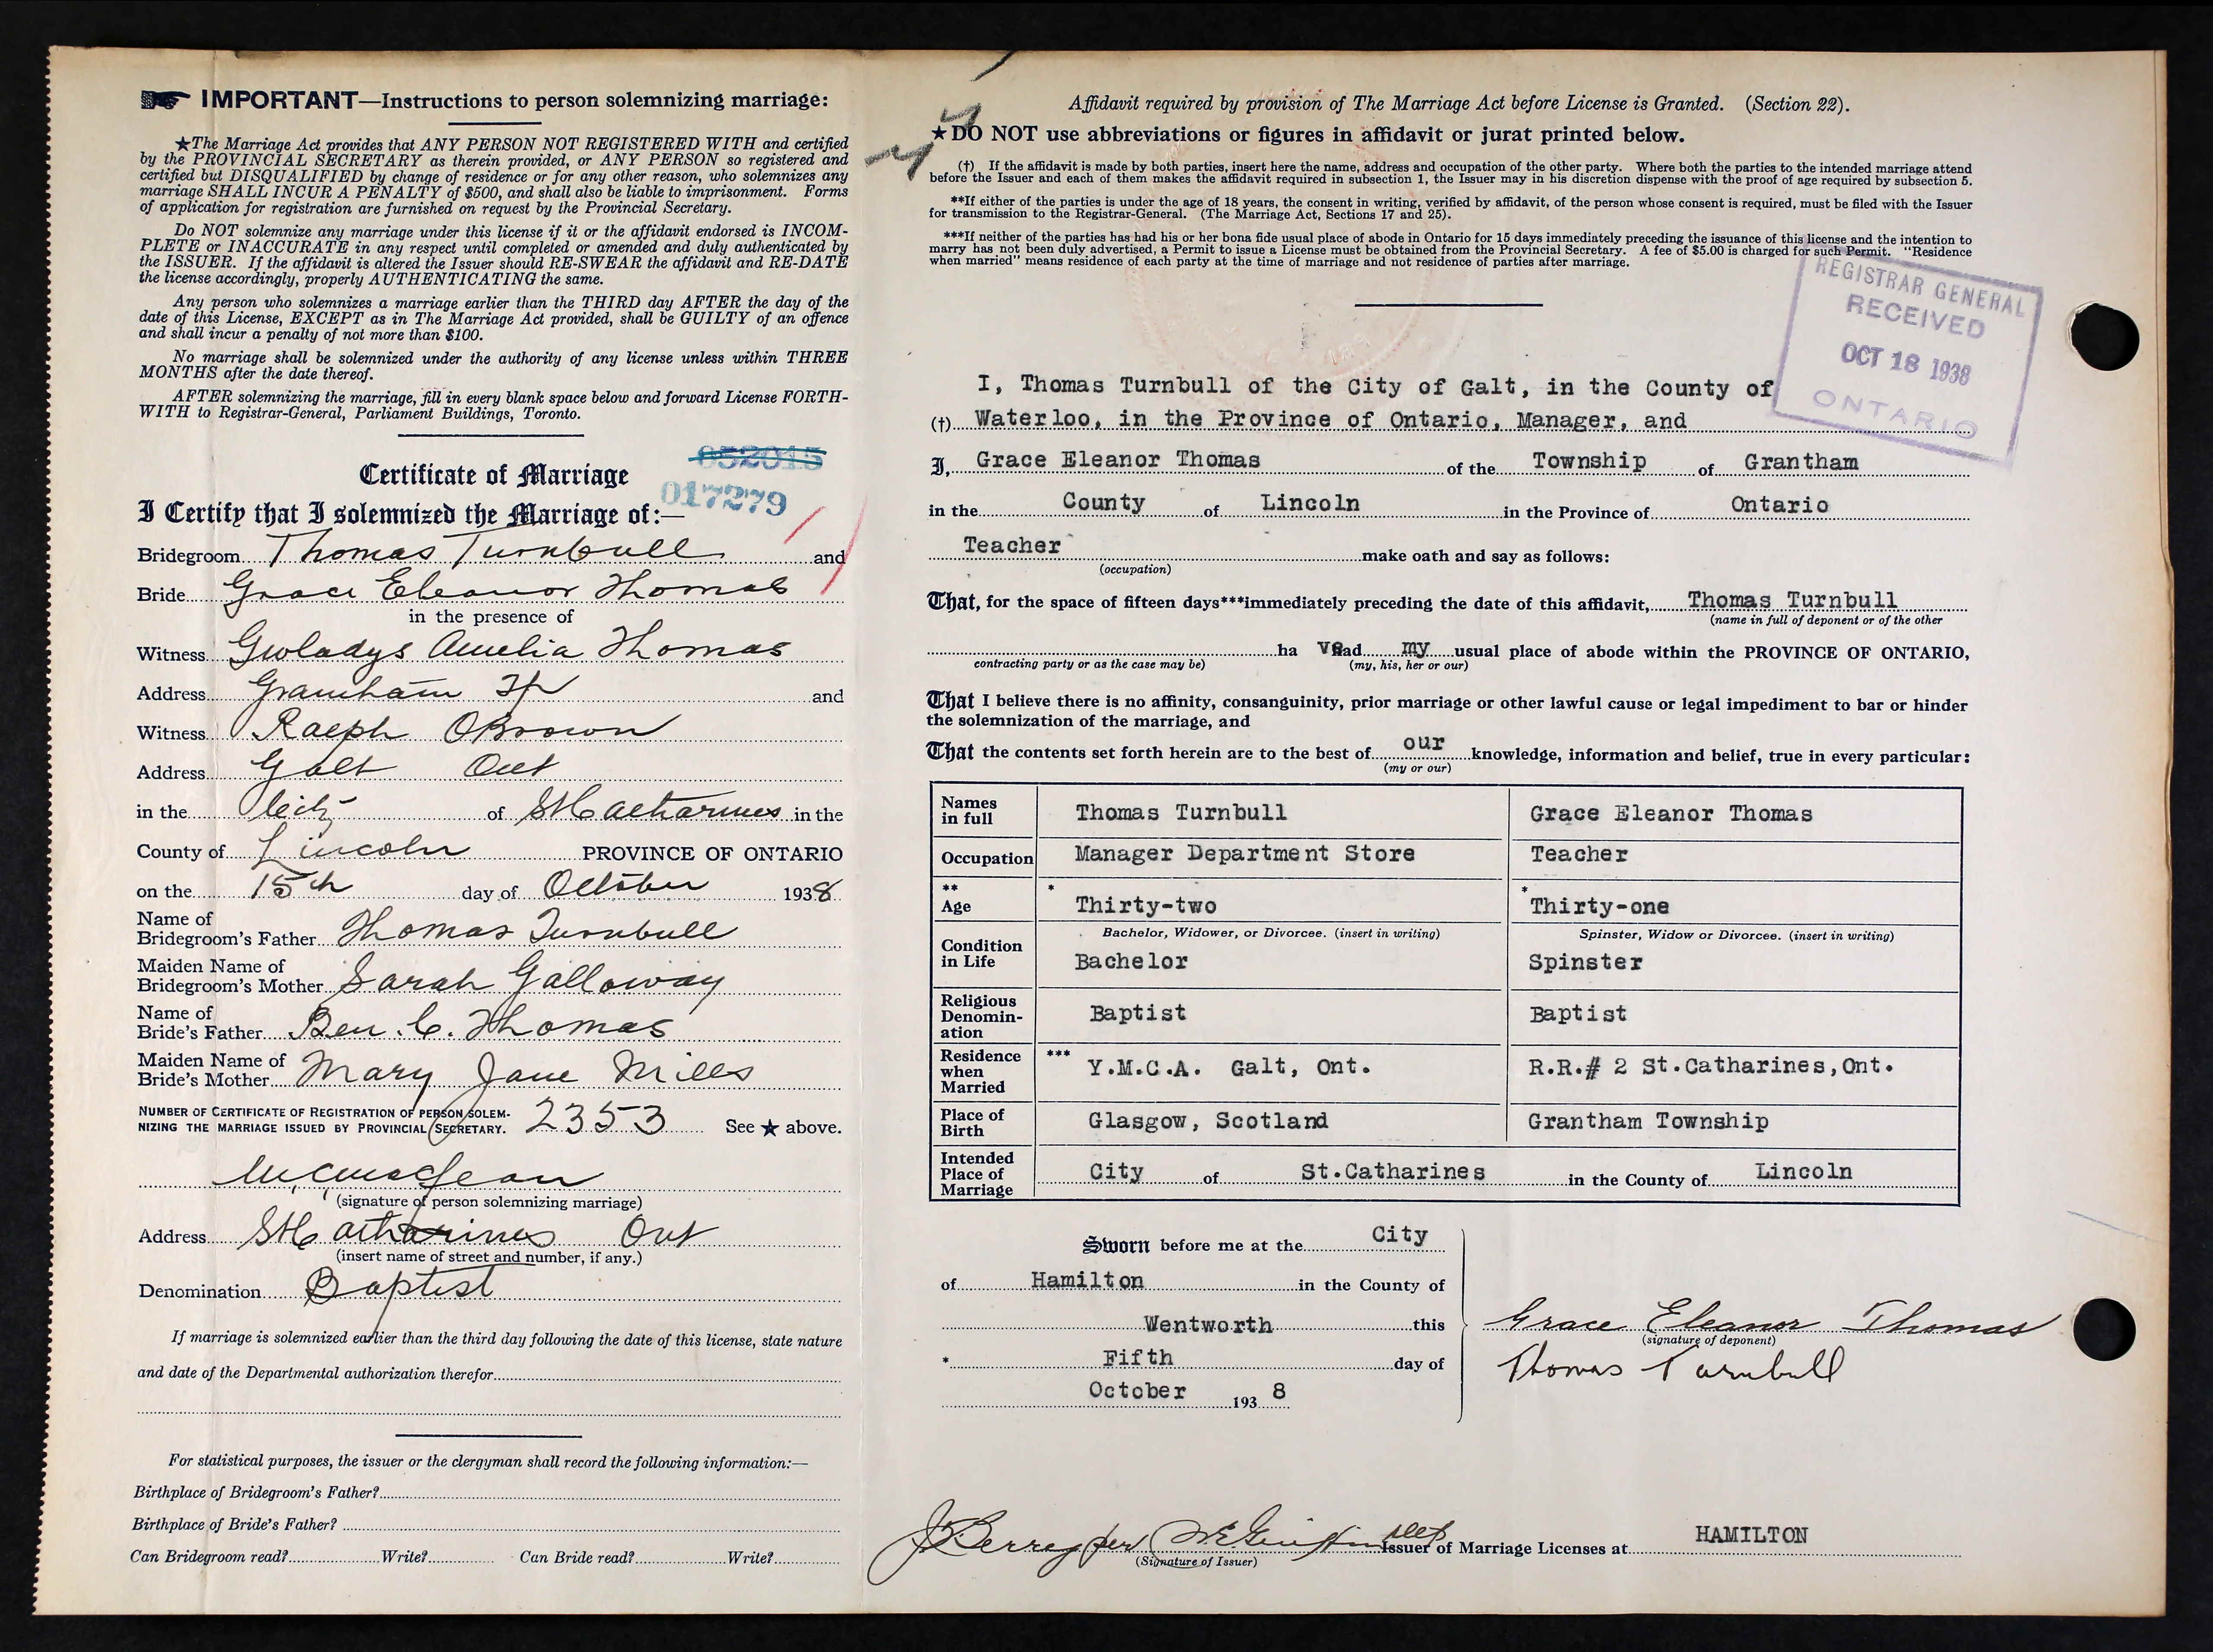 IMPORTANT—Instructions to person solemnizing marriage:
★The Marriage Act provides that ANY PERSON NOT REGISTERED WITH and certified
by the PROVINCIAL SECRETARY as therein provided, or ANY PERSON so registered and
certified but DISQUALIFIED by change of residence or for any other reason, who solemnizes any
marriage SHALL INCUR A PENALTY of $500, and shall also be liable to imprisonment. Forms
of application for registration are furnished on request by the Provincial Secretary.
Do NOT solemnize any marriage under this license if it or the affidavit endorsed is INCOM-
PLETE or INACCURATE in any respect until completed or amended and duly authenticated by
the ISSUER. If the affidavit is altered the Issuer should RE-SWEAR the affidavit and RE-DATE
the license accordingly, properly AUTHENTICATING the same.
Any person who solemnizes a marriage earlier than the THIRD day AFTER the day of the
date of this License, EXCEPT as in The Marriage Act provided, shall be GUILTY of an offence
and shall incur a penalty of not more than $100.
No marriage shall be solemnized under the authority of any license unless within THREE
MONTHS after the date thereof.
AFTER solemnizing the marriage, fill in every blank space below and forward License FORTH-
WITH to Registrar-General, Parliament Buildings, Toronto.
052015
Certificate of Marriage
017279
I Certify that I solemnized the Marriage of:—
Bridegroom Thomas Turnbull and
Bride Grace Eleanor Thomas
in the presence of
Witness Gwladys Amelia Thomas
Address Grantham Tp and
Witness Ralph O Brown
Address Galt Ont
in the City of St Catharines in the
County of Lincoln PROVINCE OF ONTARIO
on the 15th day of October 1938
Name of
Bridegroom's Father Thomas Turnbull
Maiden Name of
Bridegroom's Mother Sarah Galloway
Name of
Bride's Father Ben. C. Thomas
Maiden Name of
Bride's Mother Mary Jane Mills
NUMBER OF CERTIFICATE OF REGISTRATION OF PERSON SOLEM-
NIZING THE MARRIAGE ISSUED BY PROVINCIAL SECRETARY. 2353 See ★ above.
(signature of person solemnizing marriage)
Address St Catharines Ont
(insert name of street and number, if any.)
Denomination Baptist
If marriage is solemnized earlier than the third day following the date of this license, state nature
and date of the Departmental authorization therefor
For statistical purposes, the issuer or the clergyman shall record the following information:—
Birthplace of Bridegroom's Father?
Birthplace of Bride's Father?
Can Bridegroom read? Write? Can Bride read? Write?
Affidavit required by provision of The Marriage Act before License is Granted. (Section 22).
★DO NOT use abbreviations or figures in affidavit or jurat printed below.
(†) If the affidavit is made by both parties, insert here the name, address and occupation of the other party. Where both the parties to the intended marriage attend
before the Issuer and each of them makes the affidavit required in subsection 1, the Issuer may in his discretion dispense with the proof of age required by subsection 5.
**If either of the parties is under the age of 18 years, the consent in writing, verified by affidavit, of the person whose consent is required, must be filed with the Issuer
for transmission to the Registrar-General. (The Marriage Act, Sections 17 and 25).
***If neither of the parties has had his or her bona fide usual place of abode in Ontario for 15 days immediately preceding the issuance of this license and the intention to
marry has not been duly advertised, a Permit to issue a License must be obtained from the Provincial Secretary. A fee of $5.00 is charged for such Permit. "Residence
when married" means residence of each party at the time of marriage and not residence of parties after marriage.
REGISTRAR GENERAL
RECEIVED
OCT 18 1938
ONTARIO
I, Thomas Turnbull of the City of Galt, in the County of
(†) Waterloo, in the Province of Ontario, Manager, and
I, Grace Eleanor Thomas of the Township of Grantham
in the County of Lincoln in the Province of Ontario
Teacher make oath and say as follows:
(occupation)
That, for the space of fifteen days***immediately preceding the date of this affidavit, Thomas Turnbull
(name in full of deponent or of the other
ha ve had my usual place of abode within the PROVINCE OF ONTARIO,
contracting party or as the case may be) (my, his, her or our)
That I believe there is no affinity, consanguinity, prior marriage or other lawful cause or legal impediment to bar or hinder
the solemnization of the marriage, and
That the contents set forth herein are to the best of our knowledge, information and belief, true in every particular:
(my or our)
Names in full Thomas Turnbull Grace Eleanor Thomas
Occupation Manager Department Store Teacher
** Age * Thirty-two * Thirty-one
Bachelor, Widower, or Divorcee. (insert in writing) Spinster, Widow or Divorcee. (insert in writing)
Condition in Life Bachelor Spinster
Religious Denomin-ation Baptist Baptist
Residence when Married *** Y.M.C.A. Galt, Ont. R.R.# 2 St.Catharines,Ont.
Place of Birth Glasgow, Scotland Grantham Township
Intended Place of Marriage City of St.Catharines in the County of Lincoln
Sworn before me at the City
of Hamilton in the County of
Wentworth this
* Fifth day of
October 193 8
Grace Eleanor Thomas
(signature of deponent)
Thomas Turnbull
J Berry per Dep Issuer of Marriage Licenses at HAMILTON
(Signature of Issuer)